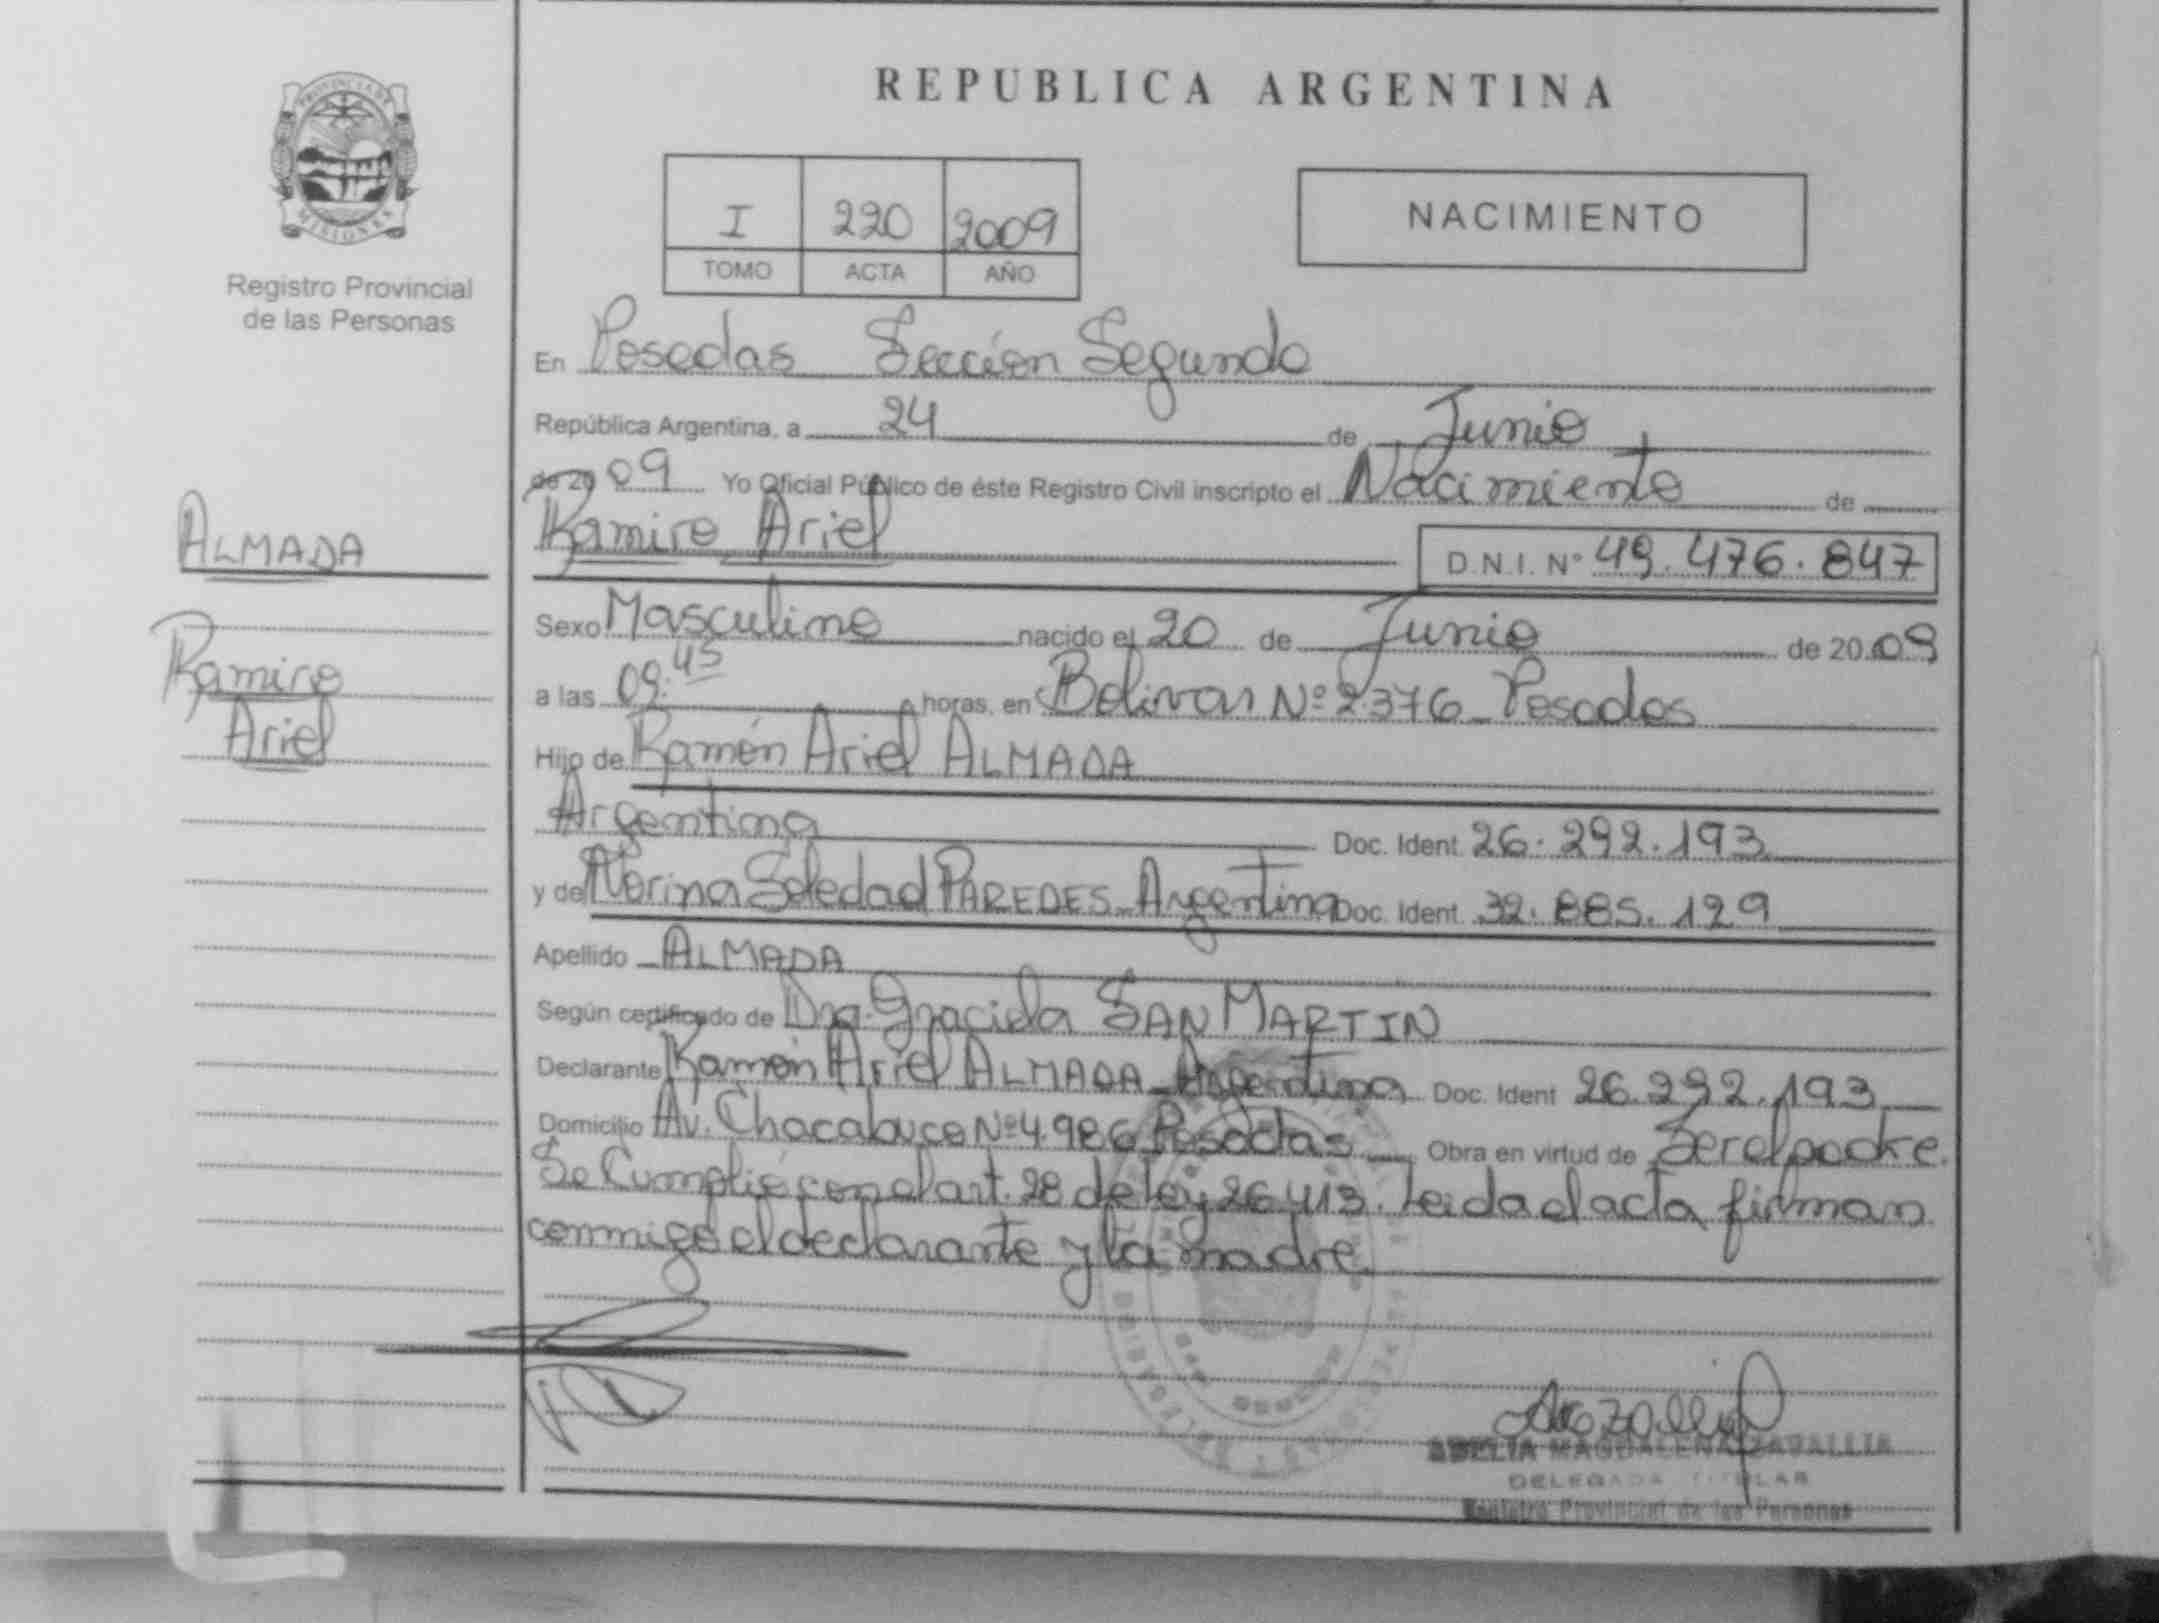 REPUBLICA ARGENTINA
PROVINCIA DE MISIONES
Registro Provincial
de las Personas
I 220 2009
TOMO ACTA AÑO
NACIMIENTO
En Posadas Sección Segunda
República Argentina, a 24 de Junio
de 20 09 Yo Oficial Público de éste Registro Civil inscripto el Nacimiento de
ALMADA
Ramiro Ariel D.N.I. Nº 49.476.847
Ramiro
Ariel
Sexo Masculino nacido el 20 de Junio de 20 09
a las 09:45 horas, en Bolivar Nº 2376 Posadas
Hijo de Ramón Ariel ALMADA
Argentina Doc. Ident. 26.292.193
y de Norina Soledad PAREDES Argentina Doc. Ident. 32.885.129
Apellido ALMADA
Según certificado de Dra. Graciela SAN MARTIN
Declarante Ramón Ariel ALMADA Argentina Doc. Ident 26.292.193
Domicilio Av. Chacabuco Nº 4.986 Posadas Obra en virtud de Ser el padre.
Se Cumplió con el art. 28 de ley 26413. Leida el acta firman
conmigo el declarante y la madre
ADELIA MAGDALENA ZABALLIA
DELEGADA TITULAR
Registro Provincial de las Personas